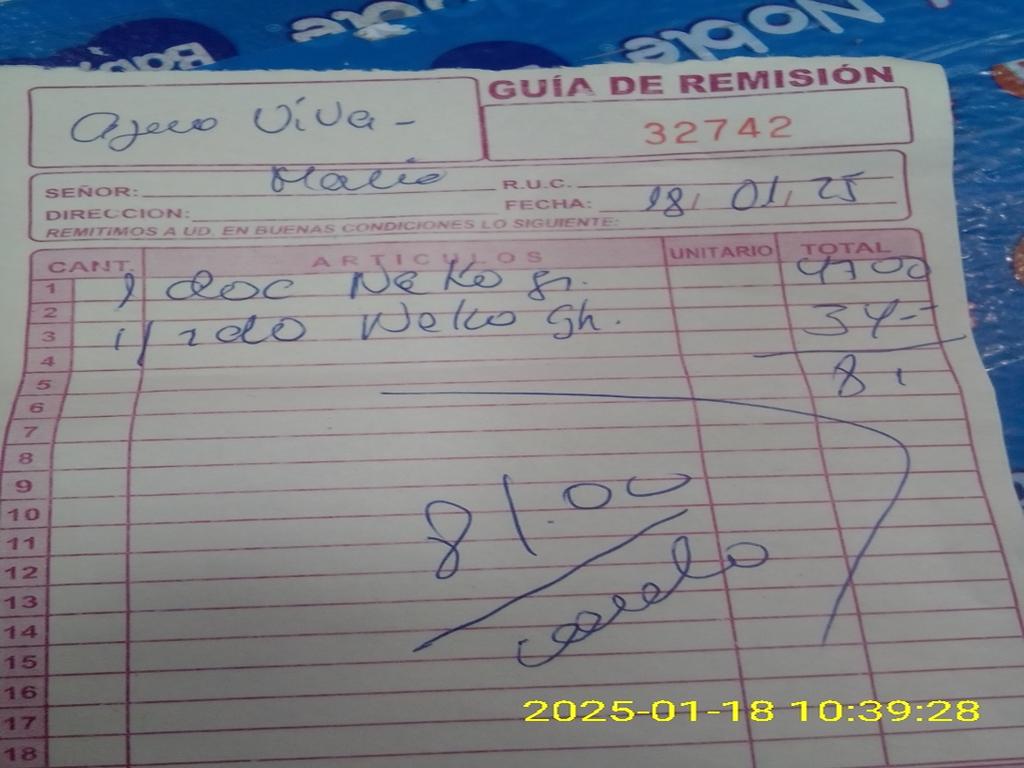 Noble
GUÍA DE REMISIÓN
Viva -
32742
SEÑOR: Mario
R.U.C.
DIRECCION:
FECHA: 18, 01, 25
REMITIMOS A UD. EN BUENAS CONDICIONES LO SIGUIENTE:
CANT. ARTICULOS UNITARIO TOTAL
1 1 doc Neko gr. 4700
2
3 1/2 do Neko Gh. 34-
4
5 81
6
7
8
9
10 81.00
11
12
13
14
15
16
17
18
2025-01-18 10:39:28